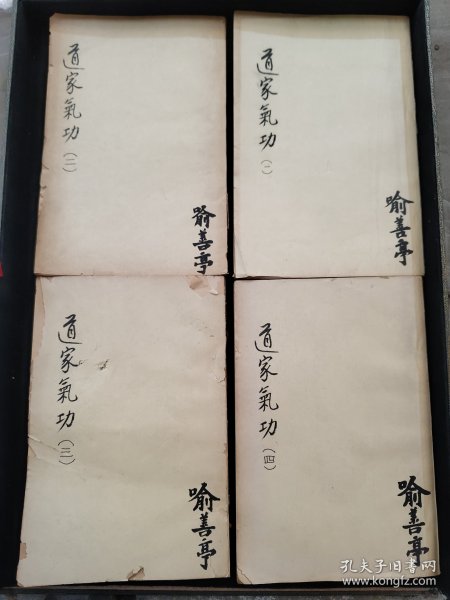 道家氣功(一)
喻善亭
道家氣功(二)
喻善亭
道家氣功(三)
喻善亭
道家氣功(四)
喻善亭
孔夫子旧书网
www.kongfz.com